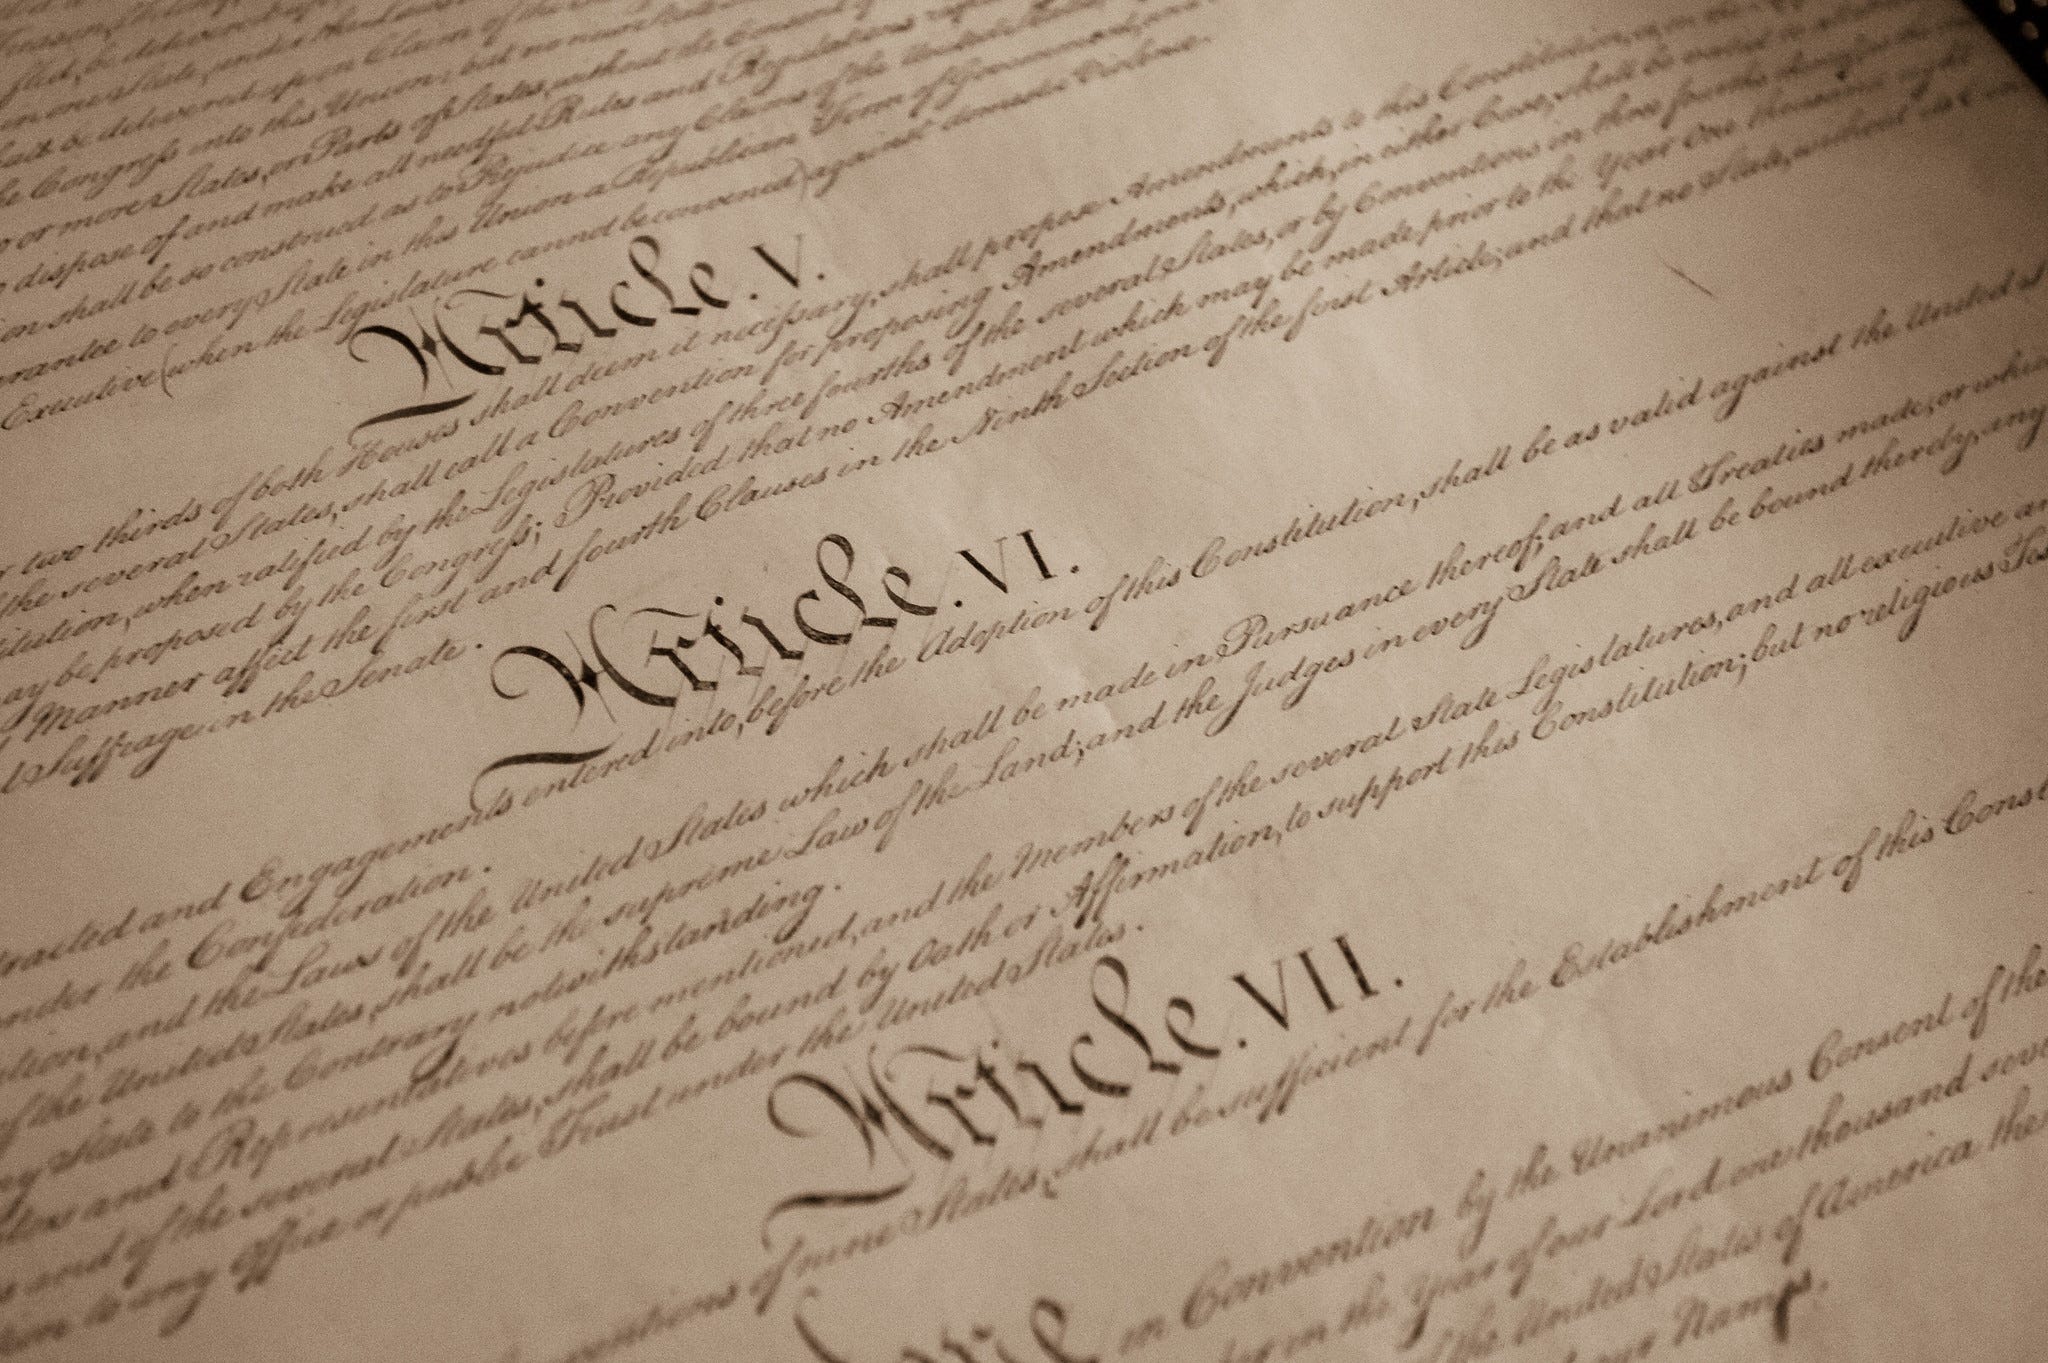 be delivered upon Claim of the
one State, under the
be delivered upon Claim of the
Congress into this Union; but no new
or more States, or Parts of States, without the Consent of
dispose of and make all needful Rules and Regulations
shall be so construed as to Prejudice any Claims of the United
to every State in this Union a Republican Form of Government, and
Executive (when the Legislature cannot be convened) against domestic Violence.
Article. V.
two thirds of both Houses shall deem it necessary, shall propose Amendments to this Constitution, or, on the
the several States, shall call a Convention for proposing Amendments, which, in either Case, shall be valid to
when ratified by the Legislatures of three fourths of the several States, or by Conventions in three fourths
may be proposed by the Congress; Provided that no Amendment which may be made prior to the Year One thousand
Manner affect the first and fourth Clauses in the Ninth Section of the first Article; and that no State, without its
Suffrage in the Senate.
Article. VI.
and Engagements entered into, before the Adoption of this Constitution, shall be as valid against the United
under the Confederation.
and the Laws of the United States which shall be made in Pursuance thereof; and all Treaties made, or
of the United States, shall be the supreme Law of the Land; and the Judges in every State shall be bound thereby, any
State to the Contrary notwithstanding.
and Representatives before mentioned, and the Members of the several State Legislatures, and all executive
and of the several States, shall be bound by Oath or Affirmation, to support this Constitution; but no religious
to any Office or public Trust under the United States.
Article. VII.
of nine States, shall be sufficient for the Establishment of this
in Convention by the Unanimous Consent of the
in the Year of our Lord one thousand
the United States of America the
our Names.